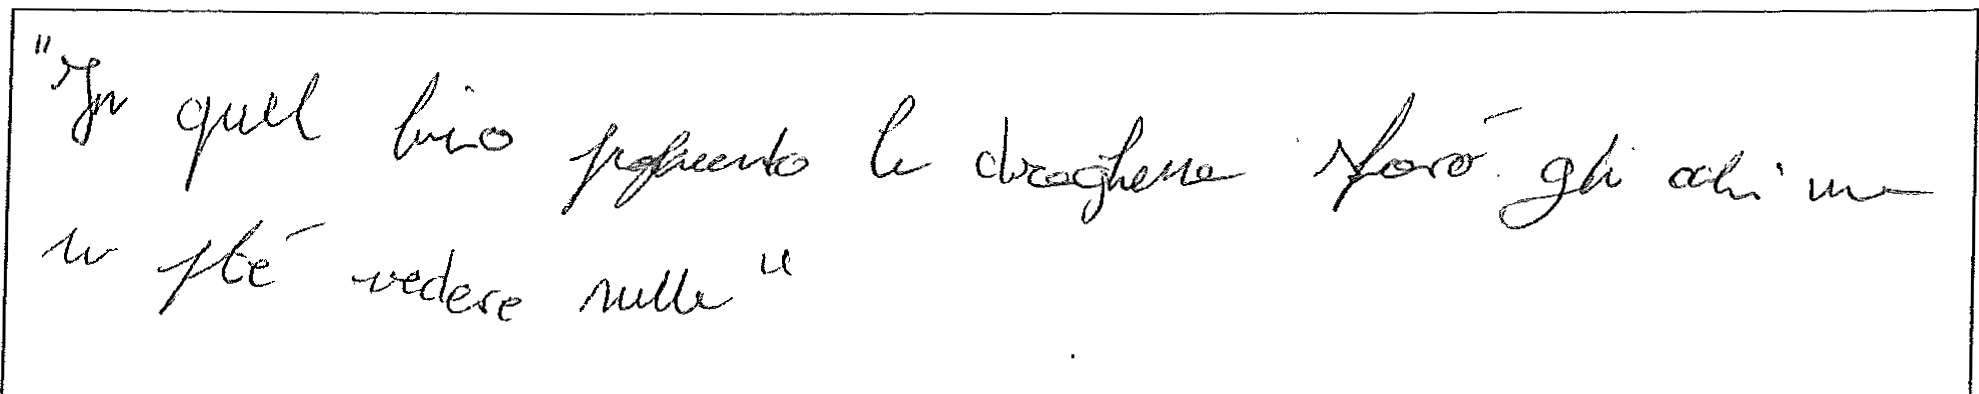 "In quel buio profondo la draghessa sforò gli occhi ma
non poté vedere nulla"